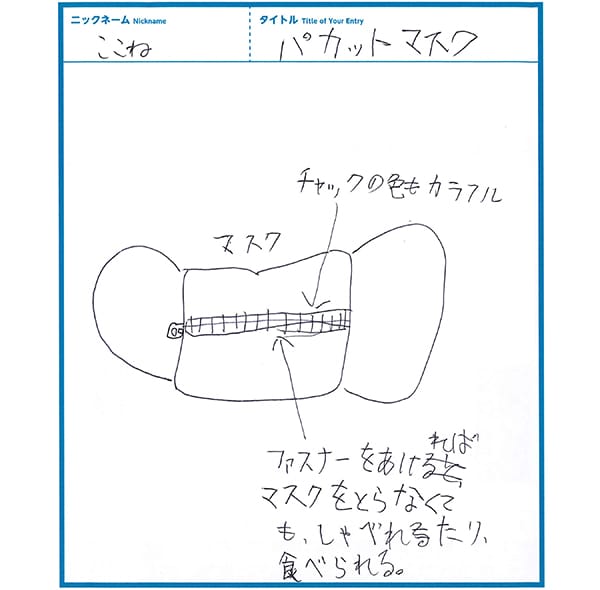 ニックネーム Nickname
タイトル Title of Your Entry
ここね
パカットマスク
チャックの色もカラフル
マスク
ファスナーをあければ
マスクをとらなくて
も、しゃべれたり、
食べられる。